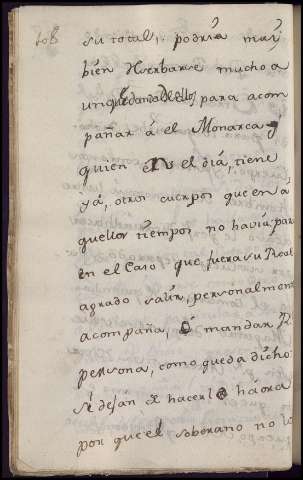 108
su total, podria muy
bien reserbarse mucho a
un quedando ellos, para acom
pañar á el Monarca á
quien en el diá, tiene
yá, otros cuerpos que en á
quellos tiempos no haviá, para
en el Caso que fuera su Real
agrado salir, personalmen
acompaña, ó mandar R.
persona, como queda dicho
si dejan de hacerlo háora
por que el soberano no lo